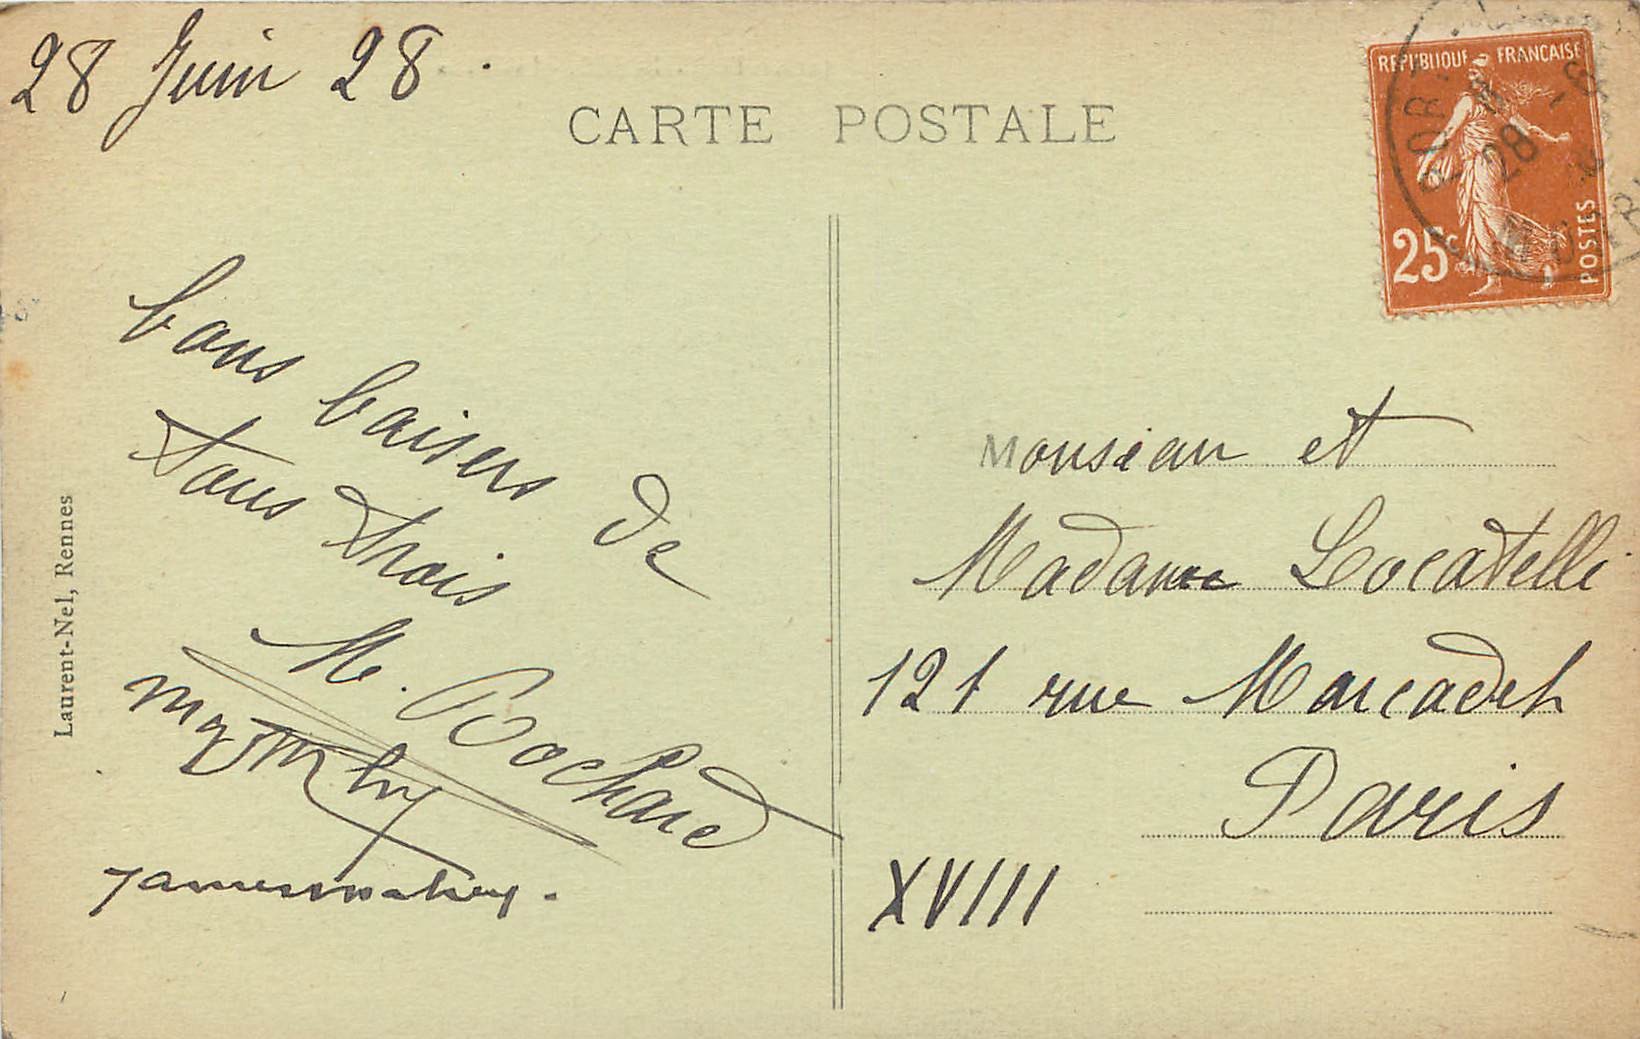 28 Juin 28.
CARTE POSTALE
REPUBLIQUE FRANCAISE
25c
POSTES
28
bons baisers de
tous trois
M. Bochard
Monsieur et
Madame Locatelli
121 rue Marcadet
Paris
XVIII
Laurent-Nel, Rennes